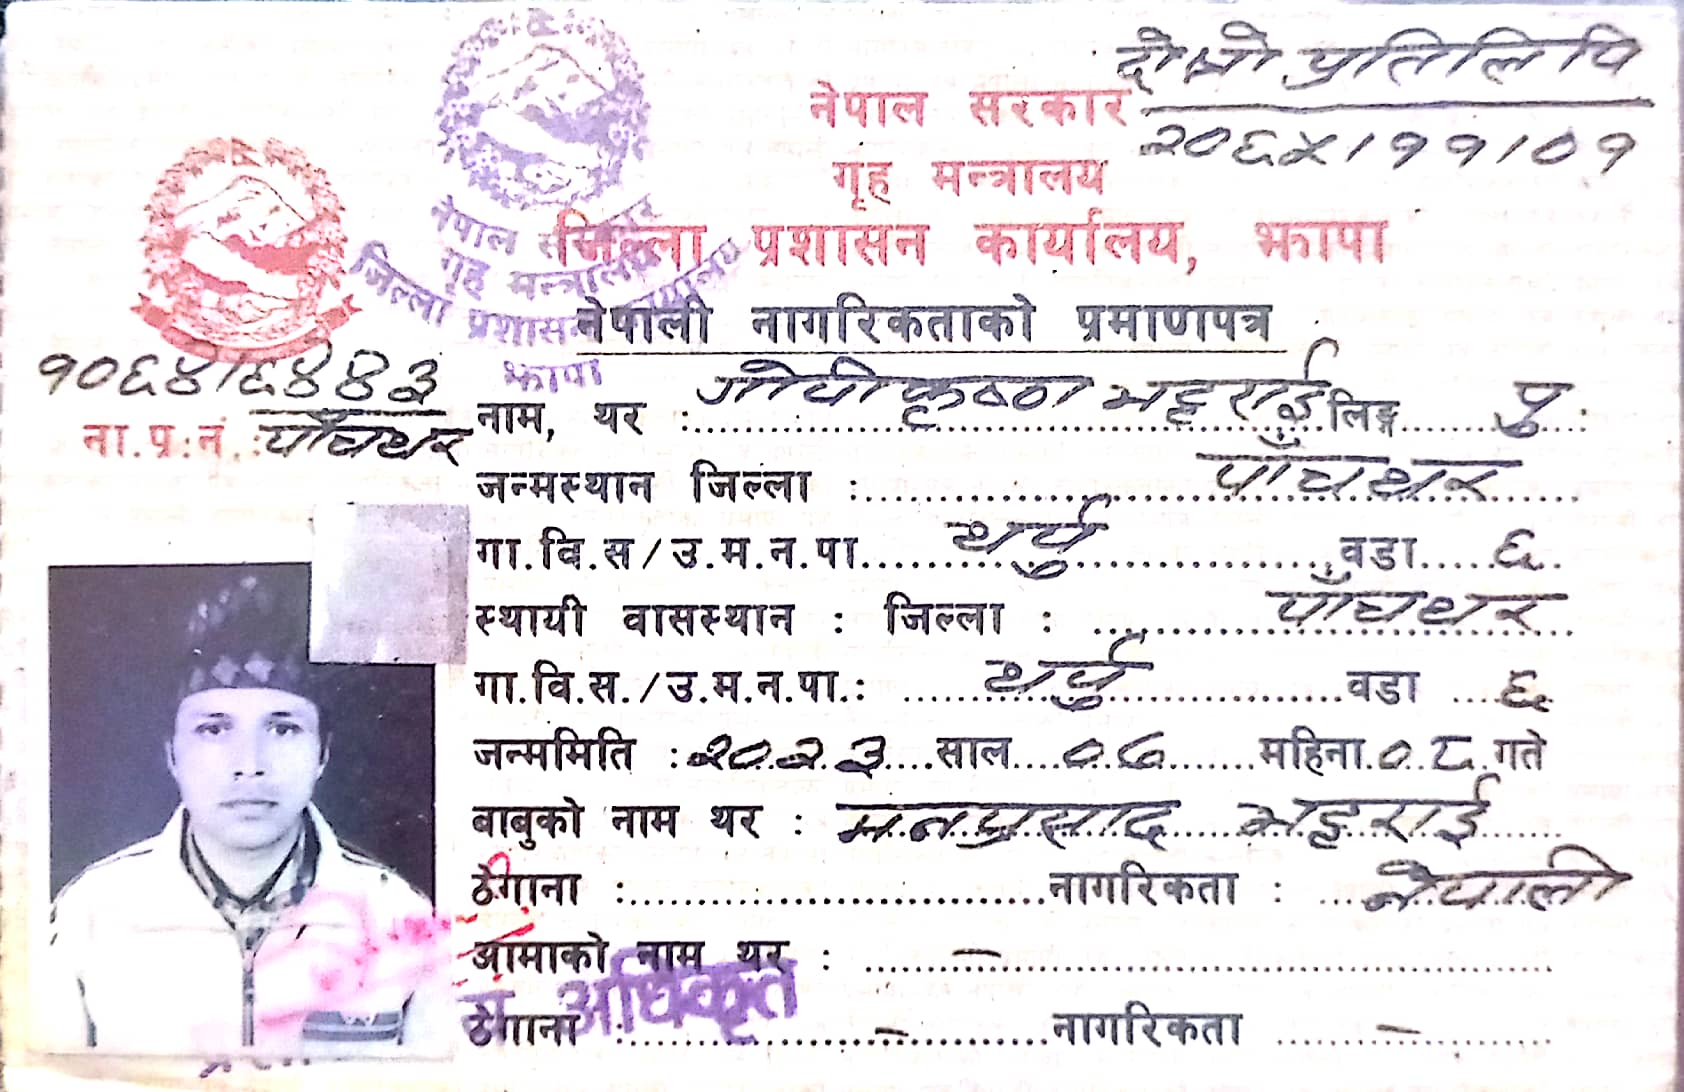 दोश्रो प्रतिलिपि
२०६५।११।०१
नेपाल सरकार
गृह मन्त्रालय
जिल्ला प्रशासन कार्यालय, झापा
नेपाली नागरिकताको प्रमाणपत्र
नेपाल सरकार
गृह मन्त्रालय
जिल्ला प्रशासन कार्यालय
झापा
१०६४।६४४३
ना.प्र.नं. : पाँचथर
नाम, थर : गोपीकृष्ण भट्टराई लिङ्ग पु
जन्मस्थान जिल्ला : पाँचथर
गा.वि.स/उ.म.न.पा. थर्पु वडा ६
स्थायी वासस्थान : जिल्ला : पाँचथर
गा.वि.स./उ.म.न.पा.: थर्पु वडा ६
जन्ममिति : २०२३ साल ०७ महिना ०८ गते
बाबुको नाम थर : मनप्रसाद भट्टराई
ठेगाना : नागरिकता : नेपाली
आमाको नाम थर : –
अधिकृत
ठेगाना : – नागरिकता –